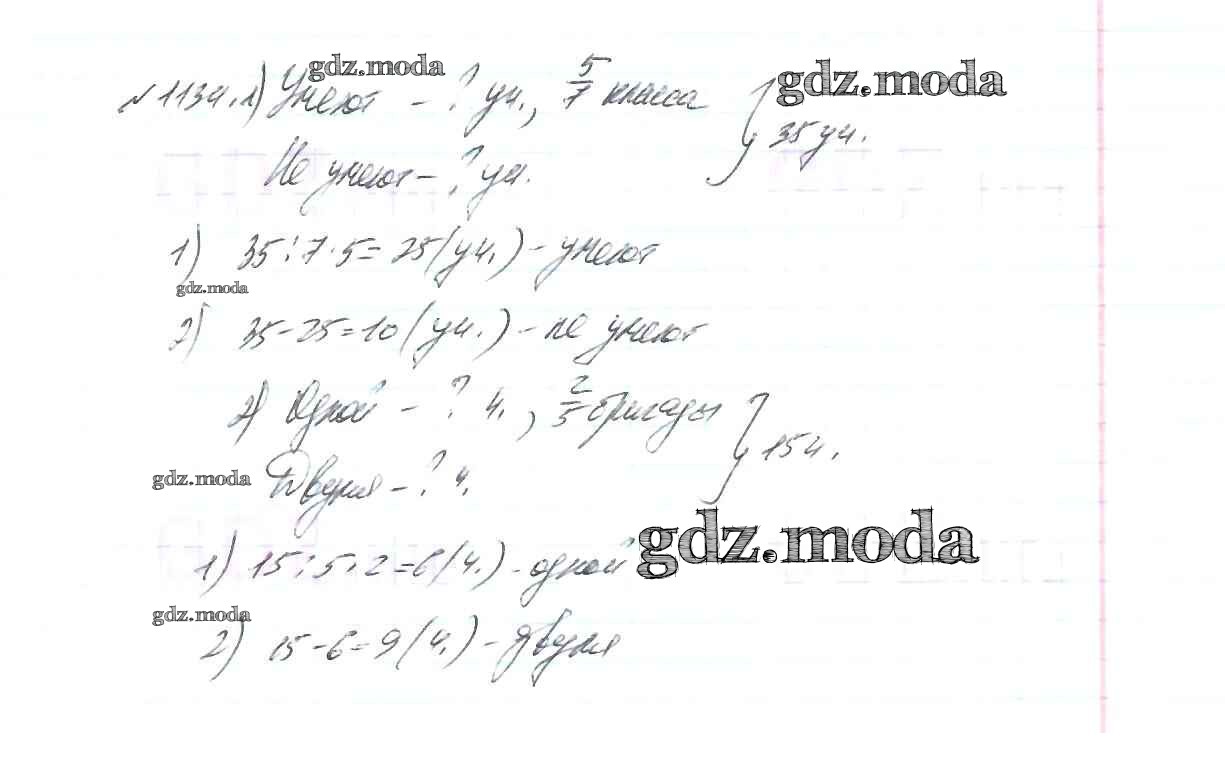 gdz.moda
gdz.moda
№ 1134. 1) Умеют - ? уч., 5/7 класса
35 уч.
Не умеют - ? уч.
1) 35:7·5=25 (уч.) - умеют
gdz.moda
2) 35-25=10 (уч.) - не умеют
2) Одной - ? ч., 2/5 бригады
15 ч.
gdz.moda
Двумя - ? ч.
gdz.moda
1) 15:5·2=6 (ч.) - одной
gdz.moda
2) 15-6=9 (ч.) - двумя